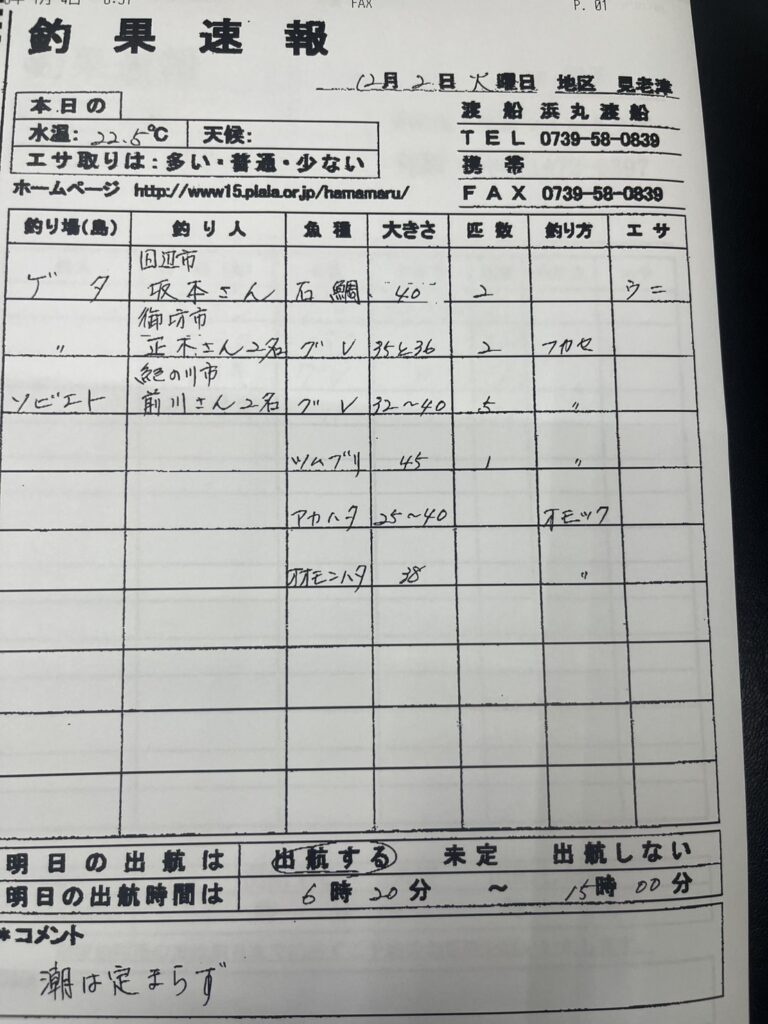 FAX P. 01
釣果速報
12月2日火曜日 地区 見老津
本日の
水温: 22.5℃ 天候:
エサ取りは:多い・普通・少ない
渡船 浜丸渡船
TEL 0739-58-0839
携帯
FAX 0739-58-0839
ホームページ http://www15.plala.or.jp/hamamaru/
釣り場(島) 釣り人 魚種 大きさ 匹数 釣り方 エサ
田辺市
ゲタ 坂本さん 石鯛 40 2 ウニ
御坊市
〃 正木さん2名 グレ 35と36 2 フカセ
紀の川市
ソビエト 前川さん2名 グレ 32〜40 5 〃
ツムブリ 45 1 〃
アカハタ 25〜40 オモック
オオモンハタ 38 〃
明日の出航は 出航する 未定 出航しない
明日の出航時間は 6時20分 〜 15時00分
*コメント
潮は定まらず